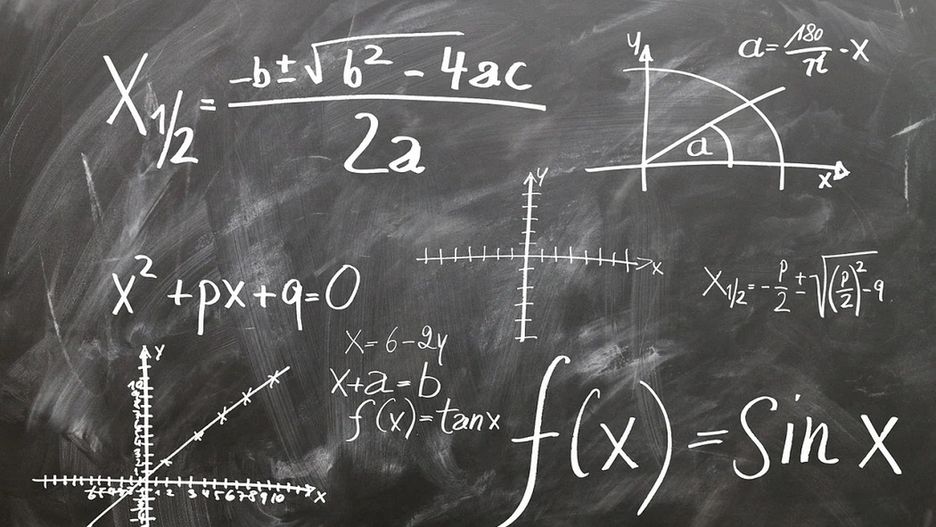 X₁/₂ = (-b ± √(b² - 4ac)) / 2a
y
a = 180/π - x
a
x
y
x
x² + px + q = 0
X₁/₂ = -p/2 ± √((p/2)² - q
x = 6 - 2y
x + a = b
f(x) = tanx
f(x) = Sin x
y
1 2 3 4 5 6 7 8 9 10 x